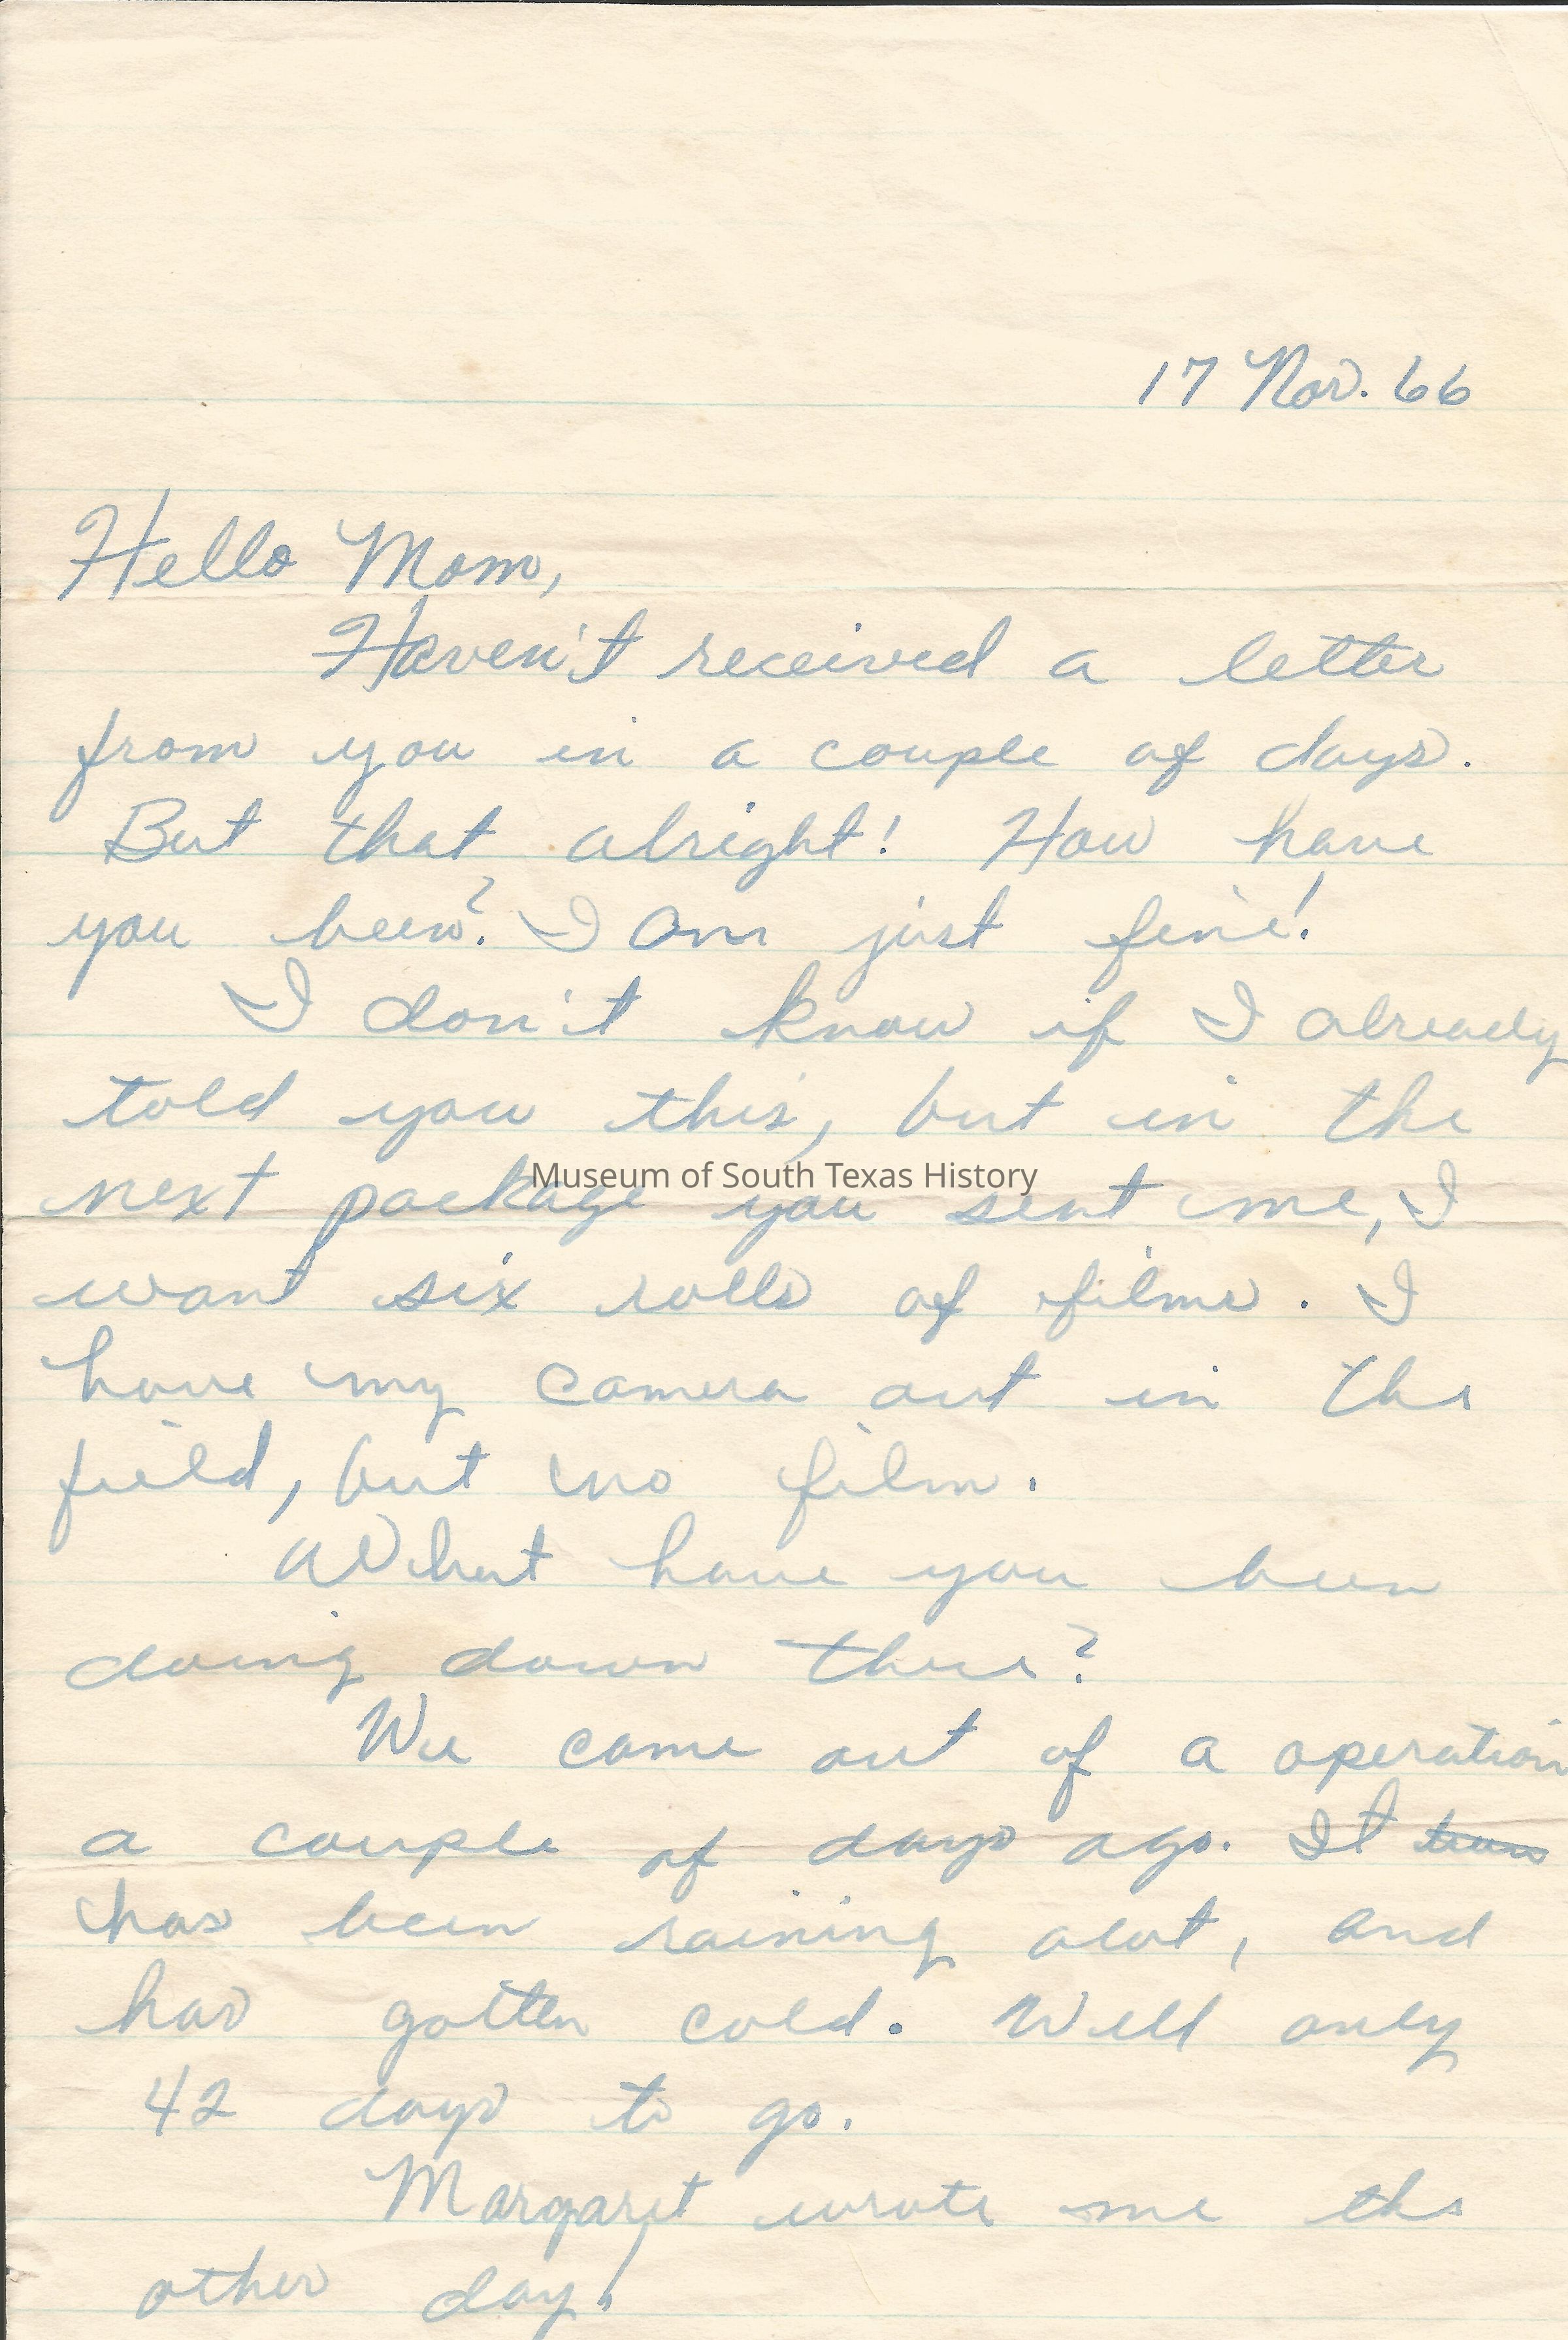 17 Nov. 66
Hello Mom,
Haven't received a letter
from you in a couple of days.
But that alright! How have
you been? I am just fine!
I don't know if I already
told you this, but in the
Museum of South Texas History
next package you sent me, I
want six rolls of films. I
have my camera out in the
field, but no film.
What have you been
doing down there?
We came out of a operation
a couple of days ago. It
has been raining alot, and
has gotten cold. Well only
42 days to go.
Margaret wrote me the
other day!